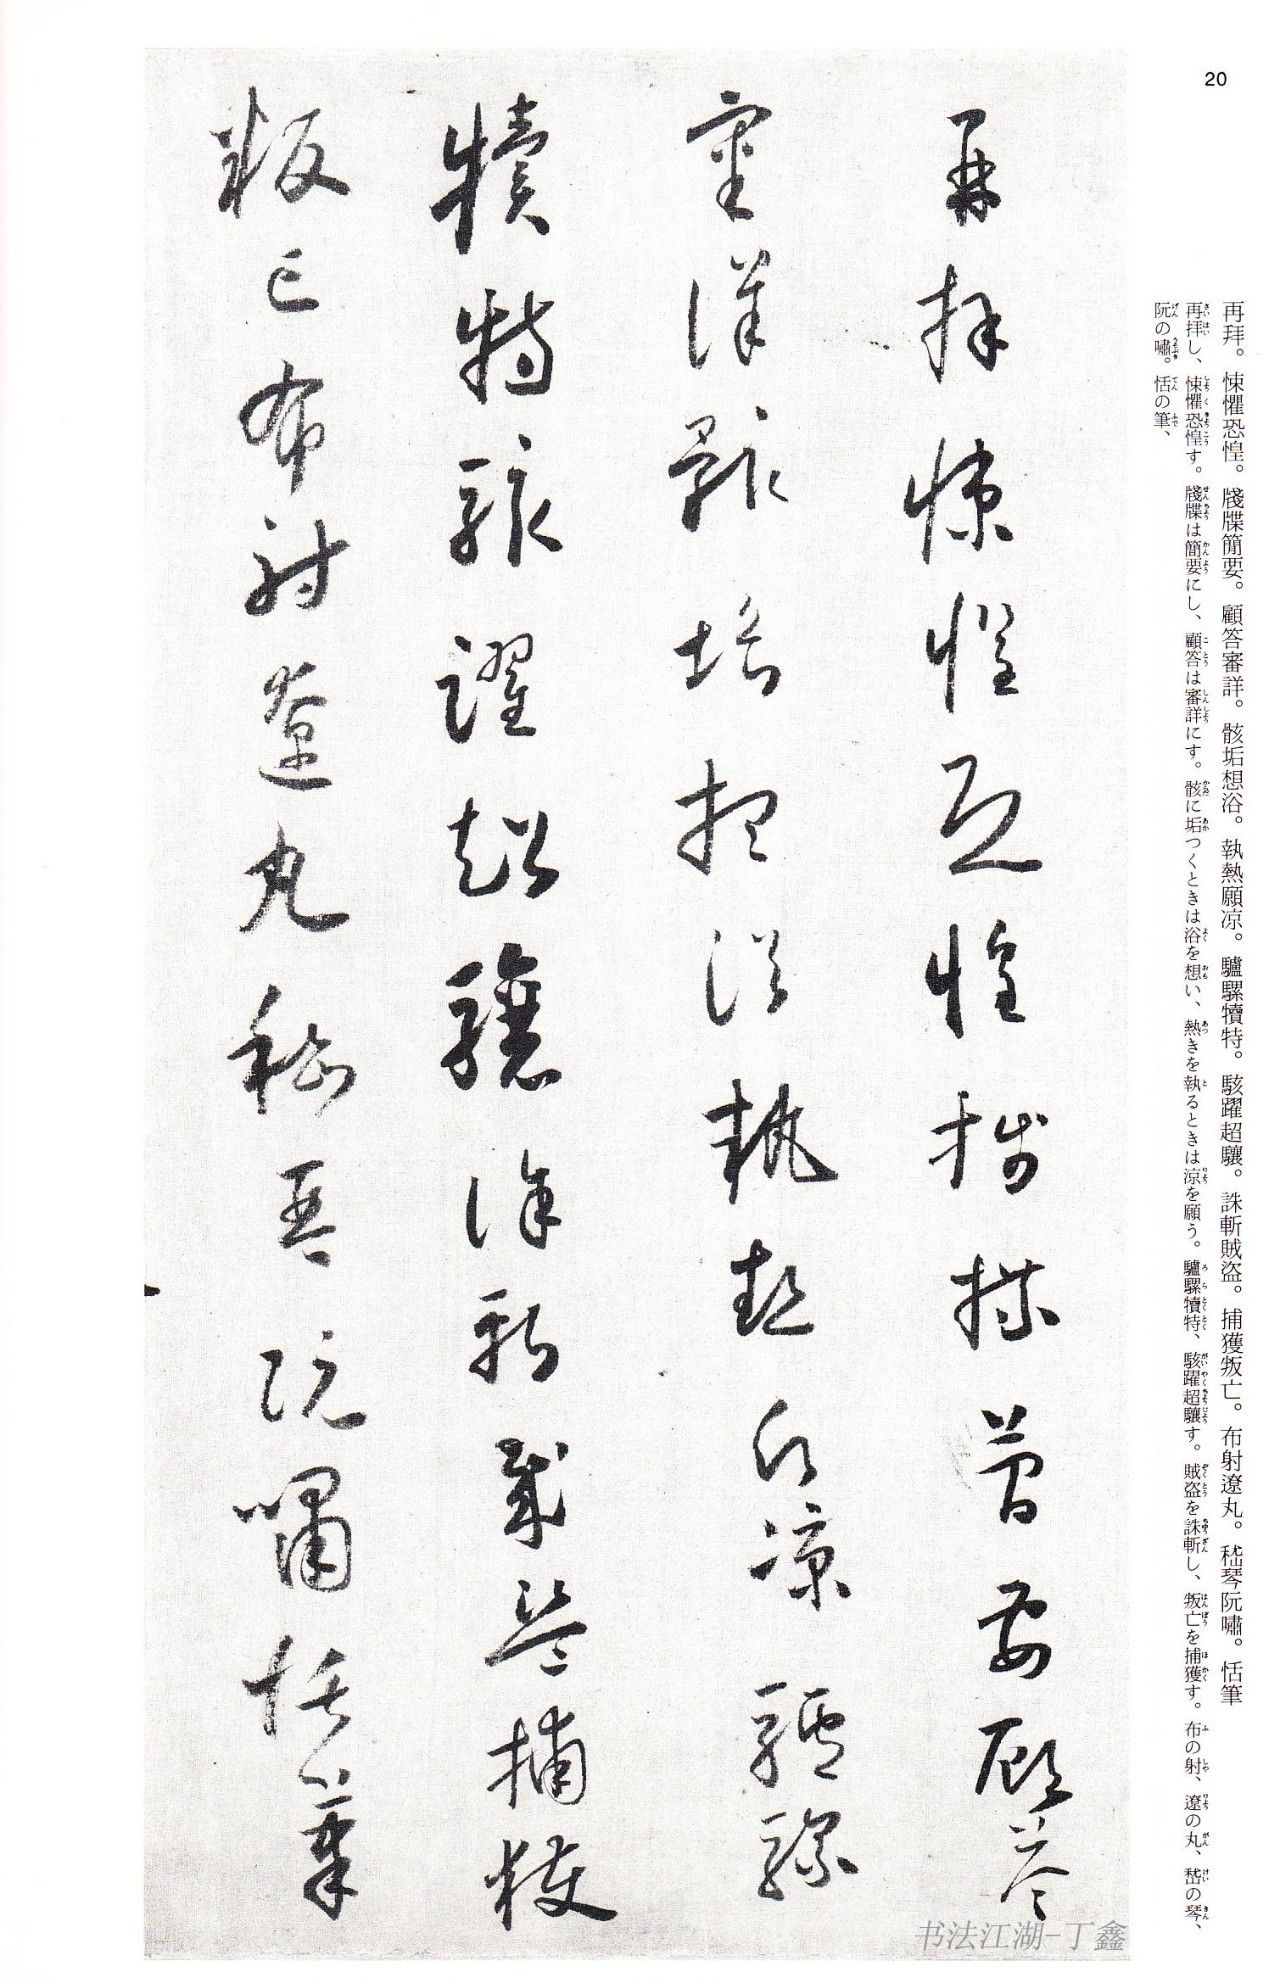 20
再拜。悚懼恐惶。牋牒簡要。顧答審詳。骸垢想浴。執熱願凉。驢騾犢特。駭躍超驤。誅斬賊盜。捕獲叛亡。布射遼丸。嵇琴阮嘯。恬筆
再拝し、悚懼恐惶す。牋牒は簡要にし、顧答は審詳にす。骸に垢つくときは浴を想い、熱きを執るときは涼を願う。驢騾犢特、駭躍超驤す。賊盗を誅斬し、叛亡を捕獲す。布の射、遼の丸、嵇の琴、
阮の嘯。恬の筆、
再拜悚懼恐惶牋牒簡要顧答
審詳骸垢想浴執熱願凉驢騾
犢特駭躍超驤誅斬賊盜捕獲
叛亡布射遼丸嵇琴阮嘯恬筆
书法江湖-丁鑫